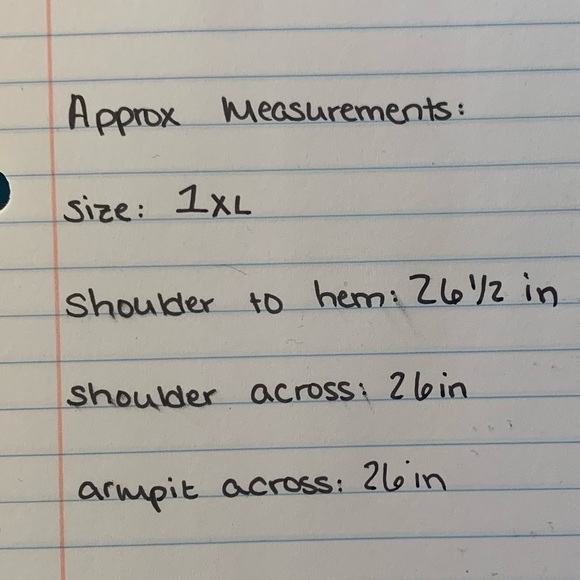 Approx Measurements:
size: 1XL
shoulder to hem: 26 1/2 in
shoulder across: 26in
armpit across: 26in